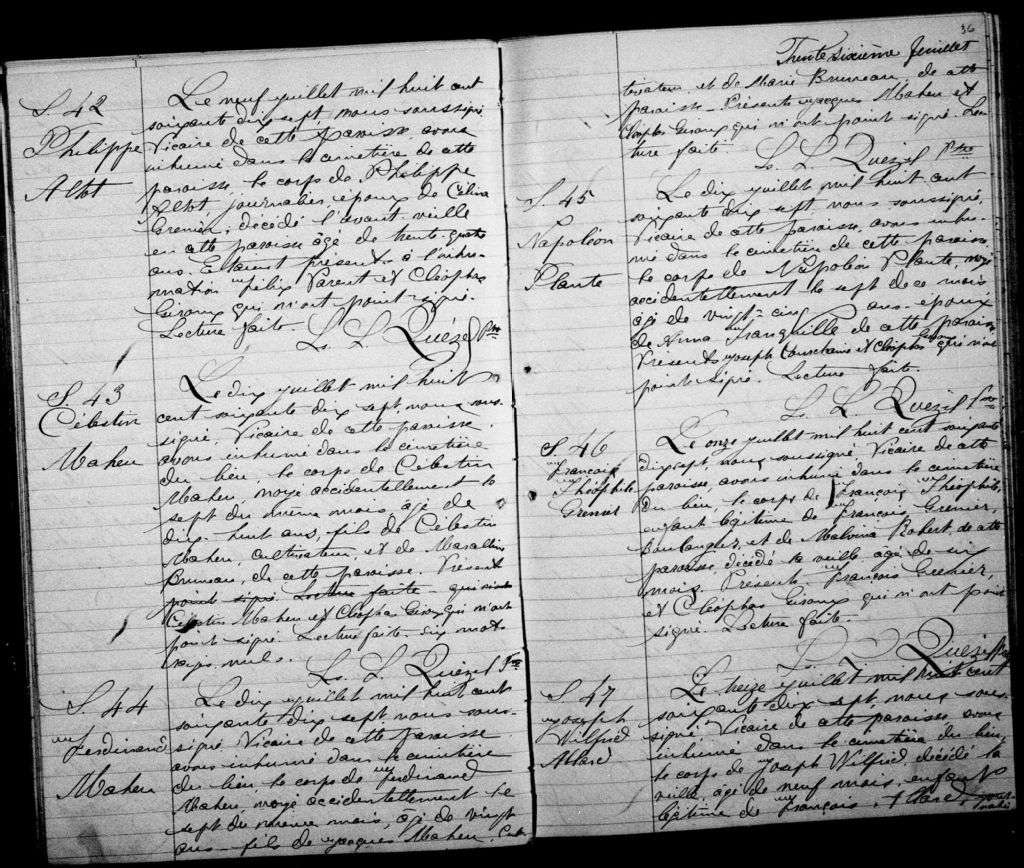 S. 42
Philippe
Altot
Le neuf juillet mil huit cent
soixante dix sept nous soussigné
Vicaire de cette paroisse avons
inhumé dans le cimetière de cette
paroisse, le corps de Philippe
Altot, journalier, époux de Célina
Grenier, décédé l'avant veille
en cette paroisse âgé de trente-quatre
ans. Etaient présents à l'inhu-
mation Félix Parent et Cléophas
Giroux qui n'ont point signé.
Lecture faite
Ls. L. Quézel Ptre
S. 43
Célestin
Maheu
Le dix juillet mil huit
cent soixante dix sept, nous sous-
signé, Vicaire de cette paroisse,
avons inhumé dans le cimetière
du lieu, le corps de Célestin
Maheu, noyé accidentellement le
sept du même mois, âgé de
dix-huit ans, fils de Célestin
Maheu, cultivateur, et de
Bruneau, de cette paroisse. Présent
point signé. Lecture faite
Célestin Maheu et Cléophas Giroux qui n'ont
point signé. Lecture faite. Six mots
rayés nuls.
Ls. L. Quézel Ptre
S. 44
Ferdinand
Maheu
Le dix juillet mil huit cent
soixante dix sept, nous sous-
signé, Vicaire de cette paroisse
avons inhumé dans le cimetière
du lieu, le corps de Ferdinand
Maheu, noyé accidentellement le
sept du même mois, âgé de vingt
ans fils de Jacques Maheu, Cul-
36
Trente sixième feuillet
tivateur, et de Marie Bruneau, de cette
paroisse. Présents Jacques Maheu et
Cléophas Giroux qui n'ont point signé. Lec-
ture faite
Ls. L. Quézel Ptre
S. 45
Napoléon
Plante
Le dix juillet mil huit cent
soixante dix sept nous soussigné,
Vicaire de cette paroisse, avons inhu-
mé dans le cimetière de cette paroisse,
le corps de Napoléon Plante, noyé
accidentellement le sept de ce mois
âgé de vingt-cinq ans, époux
de Anna Tranquille de cette paroisse
Présents Joseph et Cléophas Giroux qui n'ont
point signé. Lecture faite.
Ls. L. Quézel Ptre
S. 46
François
Théophile
Grenier
Le onze juillet mil huit cent soixante
dix sept, nous soussigné, Vicaire de cette
paroisse avons inhumé dans le cimetière
du lieu, le corps de François Théophile,
enfant légitime de François Grenier,
Boulanger, et de Malvina Robert, de cette
paroisse, décédé la veille âgé de six
mois. Présents François Grenier,
et Cléophas Giroux qui n'ont point
signé. Lecture faite.
Ls. L. Quézel Ptre
S. 47
Joseph
Wilfrid
Allard
Le treize juillet mil huit cent
soixante dix sept, nous sous-
signé, Vicaire de cette paroisse, avons
inhumé dans le cimetière du lieu
le corps de Joseph Wilfrid, décédé la
veille, âgé de neuf mois, enfant
légitime de François Allard, jour-
nalier